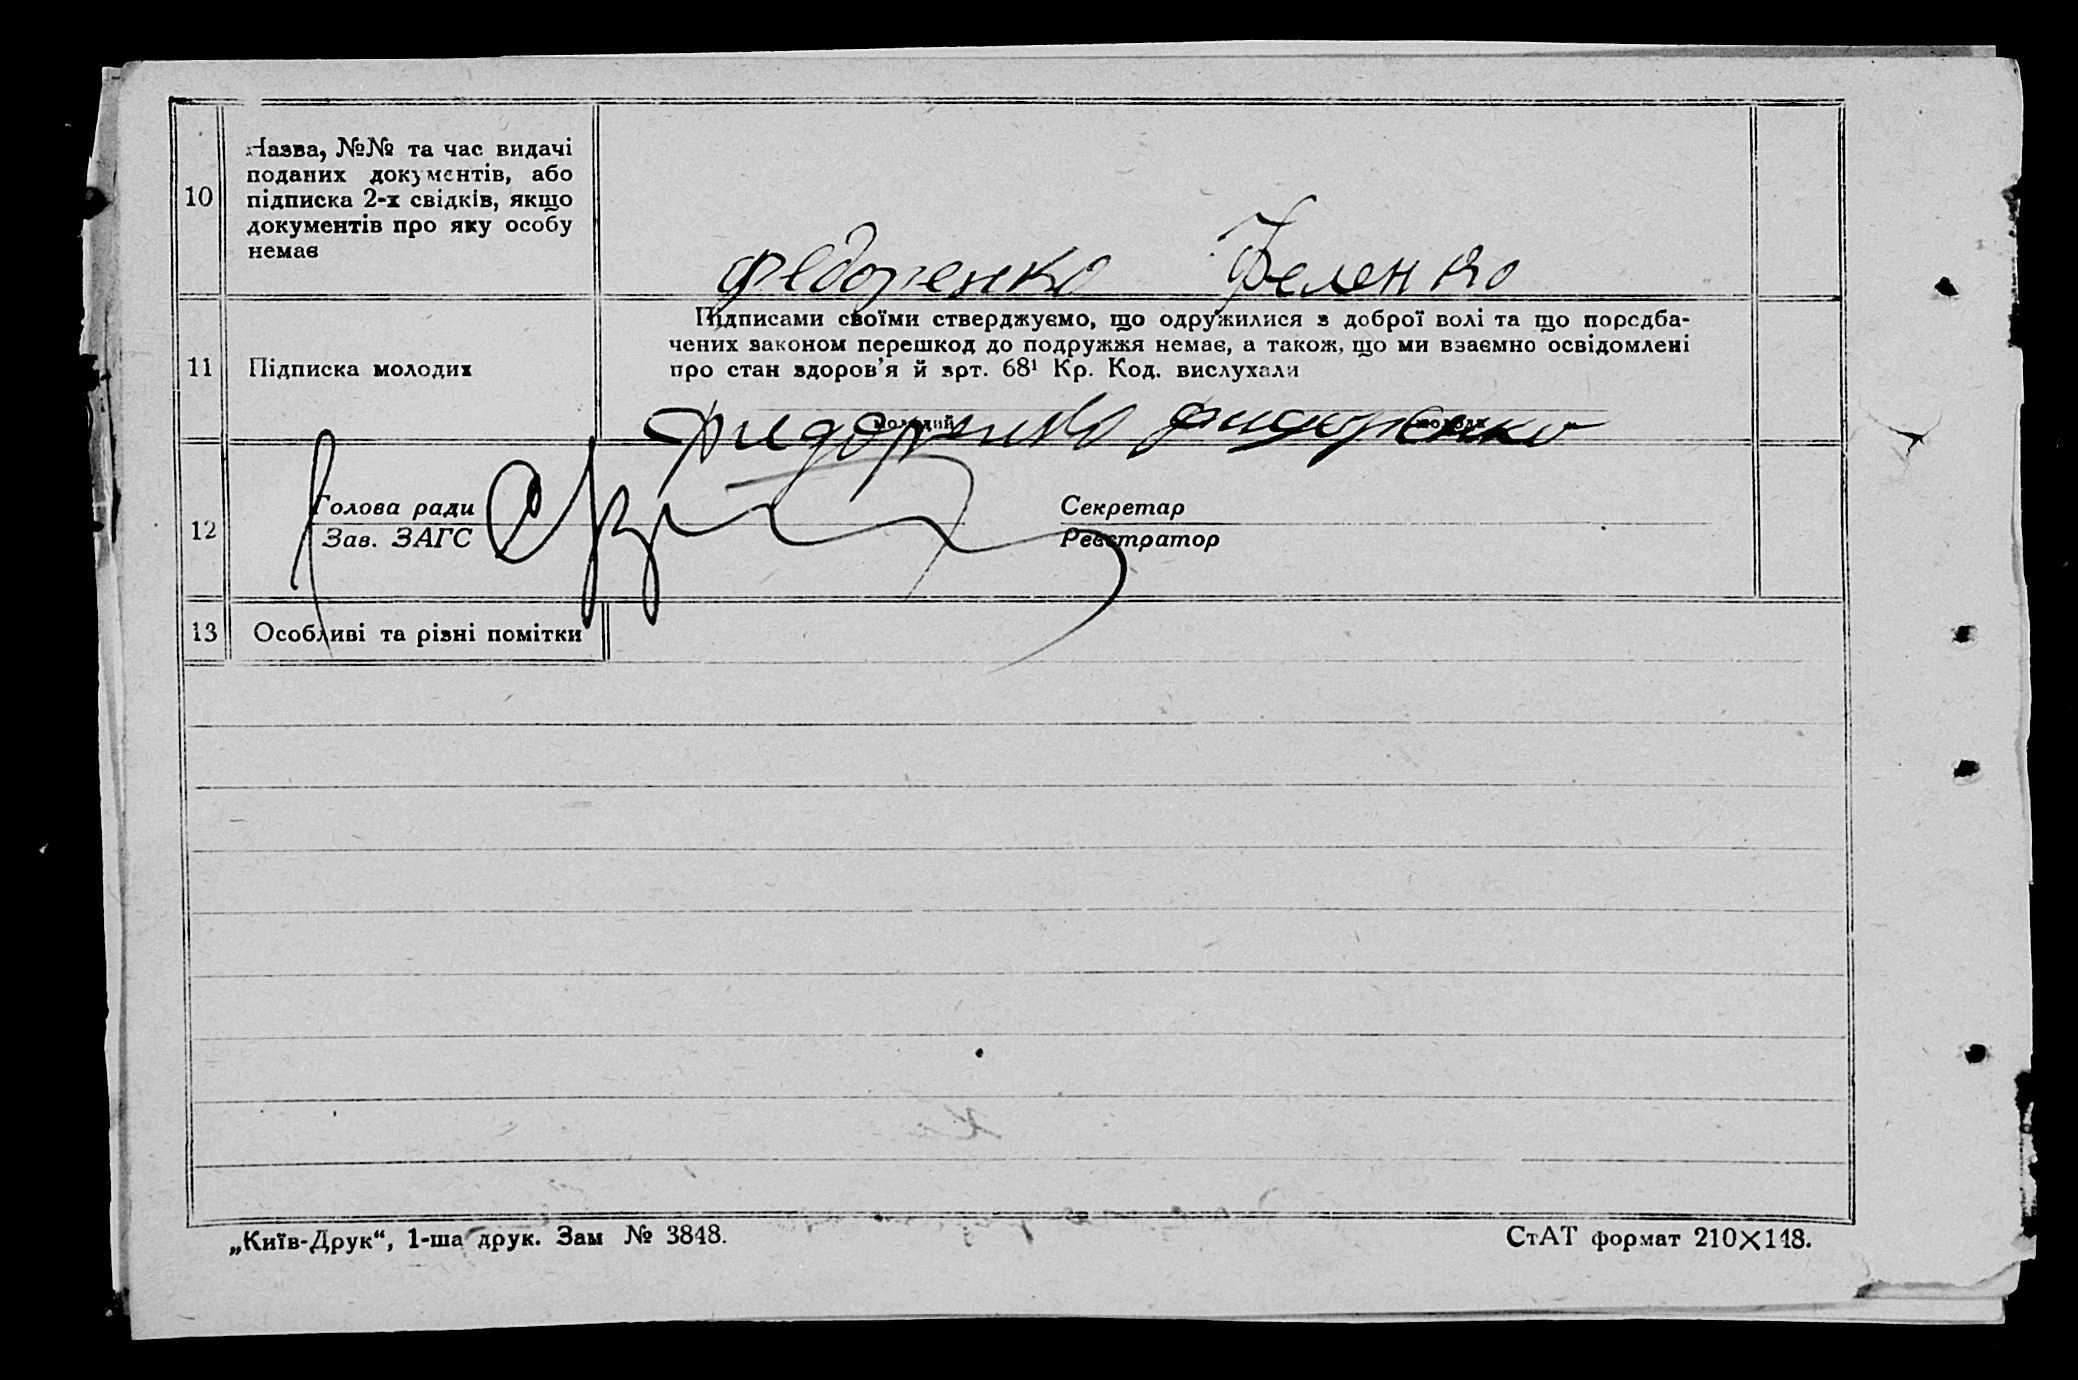 10
Назва, №№ та час видачі
поданих документів, або
підписка 2-х свідків, якщо
документів про яку особу
немає
Федоренко Феленко
11
Підписка молодих
Підписами своїми стверджуємо, що одружилися з доброї волі та що передба-
чених законом перешкод до подружжя немає, а також, що ми взаємно освідомлені
про стан здоров'я й арт. 68¹ Кр. Код. вислухали
Фидоренко Фидоренко
молодий молода
12
Голова ради
Зав. ЗАГС
Секретар
Реєстратор
13
Особливі та різні помітки
„Київ-Друк“, 1-ша друк. Зам № 3848.
СтАТ формат 210×148.